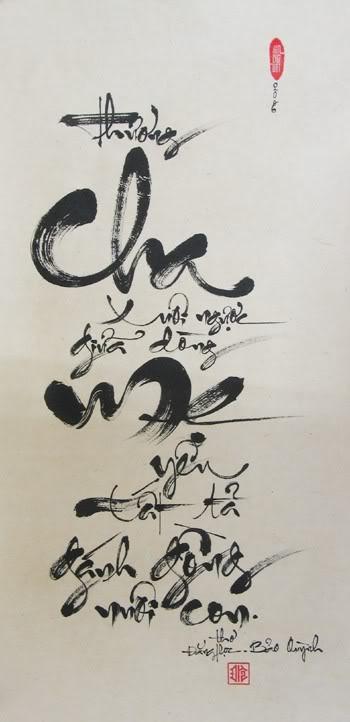 Thương
Cha
xuôi ngược
giữa dòng
Mẹ
yêu
tất tả
gánh gồng
nuôi con.
thơ
Bảo Quỳnh